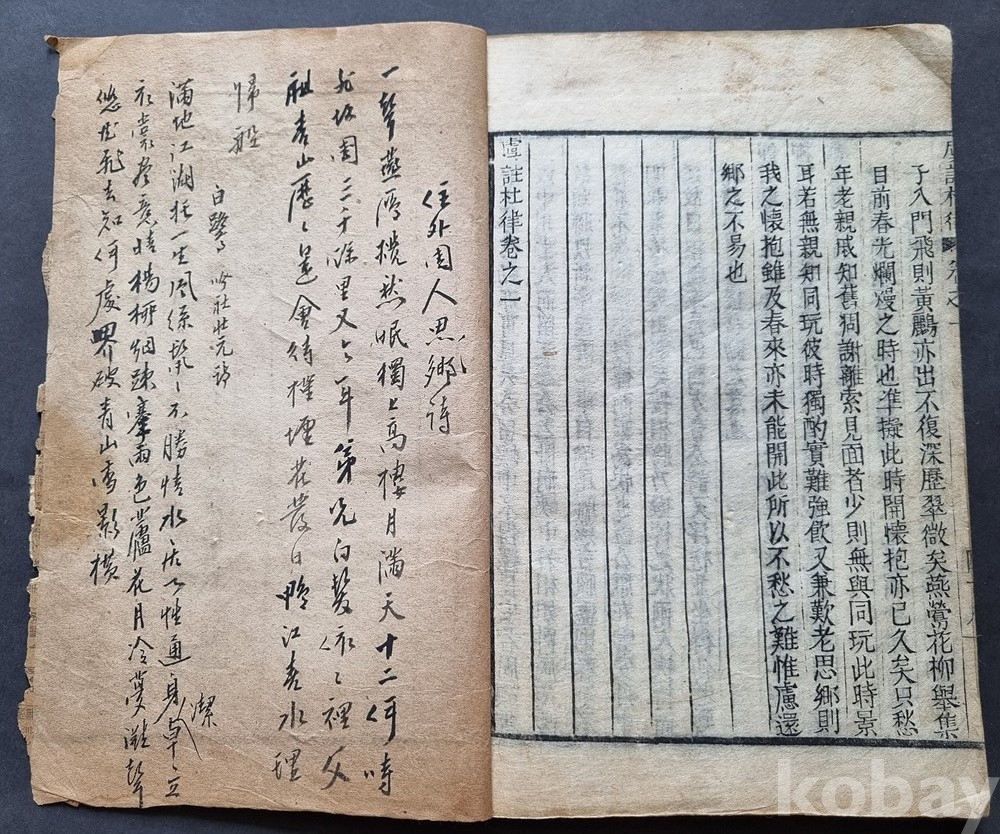 虞註杜律卷之一
子入門飛則黃鸝亦出不復深歷翠微矣燕鶯花柳舉集
目前春光爛熳之時也準擬此時開懷抱亦已久矣只愁
年老親戚知舊凋謝離索見面者少則無與同玩此時景
耳若無親知同玩彼時獨酌實難強飲又兼歎老思鄉則
我之懷抱雖及春來亦未能開此所以不愁之難惟慮還
鄉之不易也
虞註杜律卷之一
住外國人思鄉詩
一聲燕鴈攪然眠獨上高樓月滿天十二何時
故國三千餘里又今年弟兄白髮依〻裡父
祖青山歷〻邊會待槿堙花發日鴨江春水理
歸船
白鷺
滿地江湖托一生風絲鬖〻不勝情水居心性通身潔卓〻立
衣裳盡意晴楊柳烟踈摩雨色蘆花月冷蘷灘聲
悠然飛去知何處界破青山雪影橫
kobay